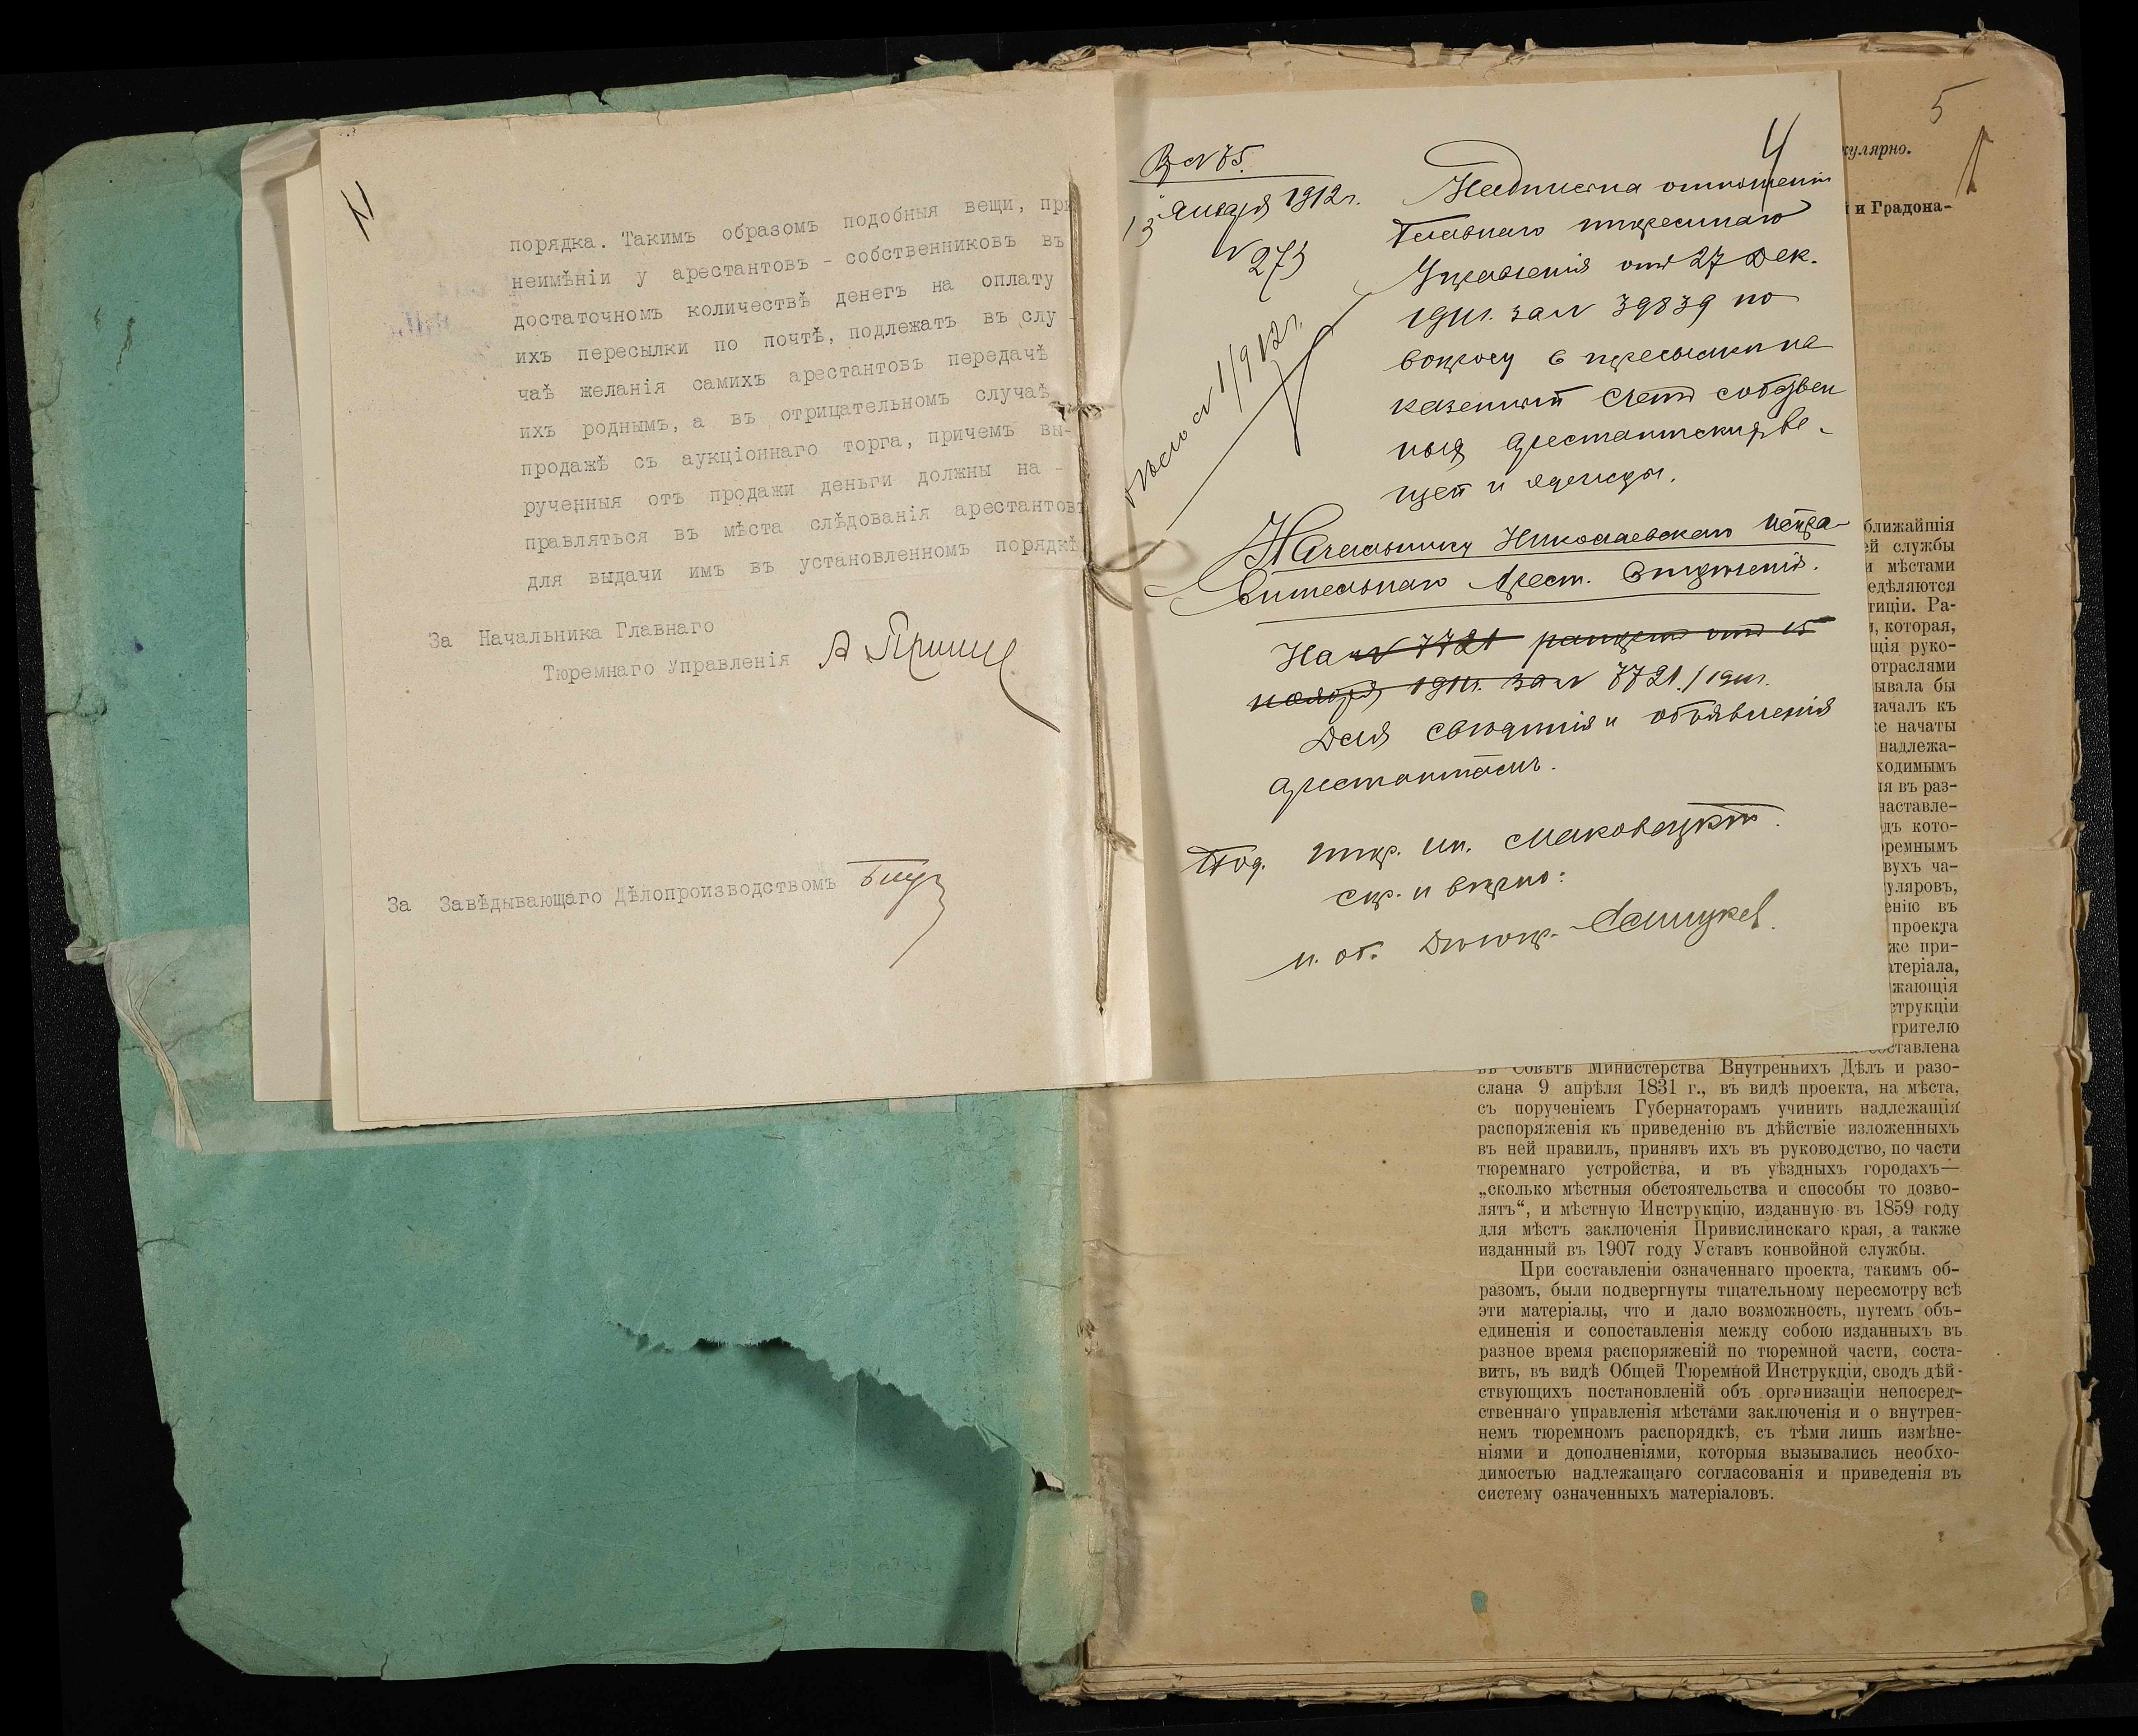 порядка. Такимъ образомъ подобныя вещи, при
неимѣніи у арестантовъ - собственниковъ въ
достаточномъ количествѣ денегъ на оплату
ихъ пересылки по почтѣ, подлежатъ въ слу-
чаѣ желанія самихъ арестантовъ передачѣ
ихъ роднымъ, а въ отрицательномъ случаѣ
продажѣ съ аукціоннаго торга, причемъ вы-
рученныя отъ продажи деньги должны на -
правляться въ мѣста слѣдованія арестантовъ
для выдачи имъ въ установленномъ порядкѣ
За Начальника Главнаго
Тюремнаго Управленія
За Завѣдывающаго Дѣлопроизводствомъ
4
Вх №75.
13 Января 1912 г.
№ 273
1/912 г.
Надпись на отношеніи
Главнаго тюремнаго
Управленія отъ 27 Дек.
1911 г. за № 39839 по
вопросу о пересылки на
казенный счетъ собствен
ныя арестантскихъ ве-
щей и одежды.
Начальнику Николаевскаго Испра-
вительнаго Арест. Отдѣленія.
На № 7721 рапортъ отъ 15
ноября 1911 г. за № 7721/1911 г.
Для свѣдѣнія и объявленія
арестантамъ.
Под. тюр. ин. Маковецкій.
скр. и вѣрно:
и. об. Дѣлопр.
5
кулярно.
й и Градона-
ближайшія
ей службы
и мѣстами
едѣляются
тиціи. Ра-
и, которая,
щія руко-
отраслями
ывала бы
началъ къ
же начаты
надлежа-
ходимымъ
ія въ раз-
наставле-
дъ кото-
ремнымъ
вухъ ча-
уляровъ,
енію въ
проекта
же при-
атеріала,
жающія
струкціи
трителю
составлена
въ Совѣтѣ Министерства Внутреннихъ Дѣлъ и разо-
слана 9 апрѣля 1831 г., въ видѣ проекта, на мѣста,
съ порученіемъ Губернаторамъ учинить надлежащія
распоряженія къ приведенію въ дѣйствіе изложенныхъ
въ ней правилъ, принявъ ихъ въ руководство, по части
тюремнаго устройства, и въ уѣздныхъ городахъ—
„сколько мѣстныя обстоятельства и способы то дозво-
лятъ“, и мѣстную Инструкцію, изданную въ 1859 году
для мѣстъ заключенія Привислинскаго края, а также
изданный въ 1907 году Уставъ конвойной службы.
При составленіи означеннаго проекта, такимъ об-
разомъ, были подвергнуты тщательному пересмотру всѣ
эти матеріалы, что и дало возможность, путемъ объ-
единенія и сопоставленія между собою изданныхъ въ
разное время распоряженій по тюремной части, соста-
вить, въ видѣ Общей Тюремной Инструкціи, сводъ дѣй-
ствующихъ постановленій объ организаціи непосред-
ственнаго управленія мѣстами заключенія и о внутрен-
немъ тюремномъ распорядкѣ, съ тѣми лишь измѣне-
ніями и дополненіями, которыя вызывались необхо-
димостью надлежащаго согласованія и приведенія въ
систему означенныхъ матеріаловъ.